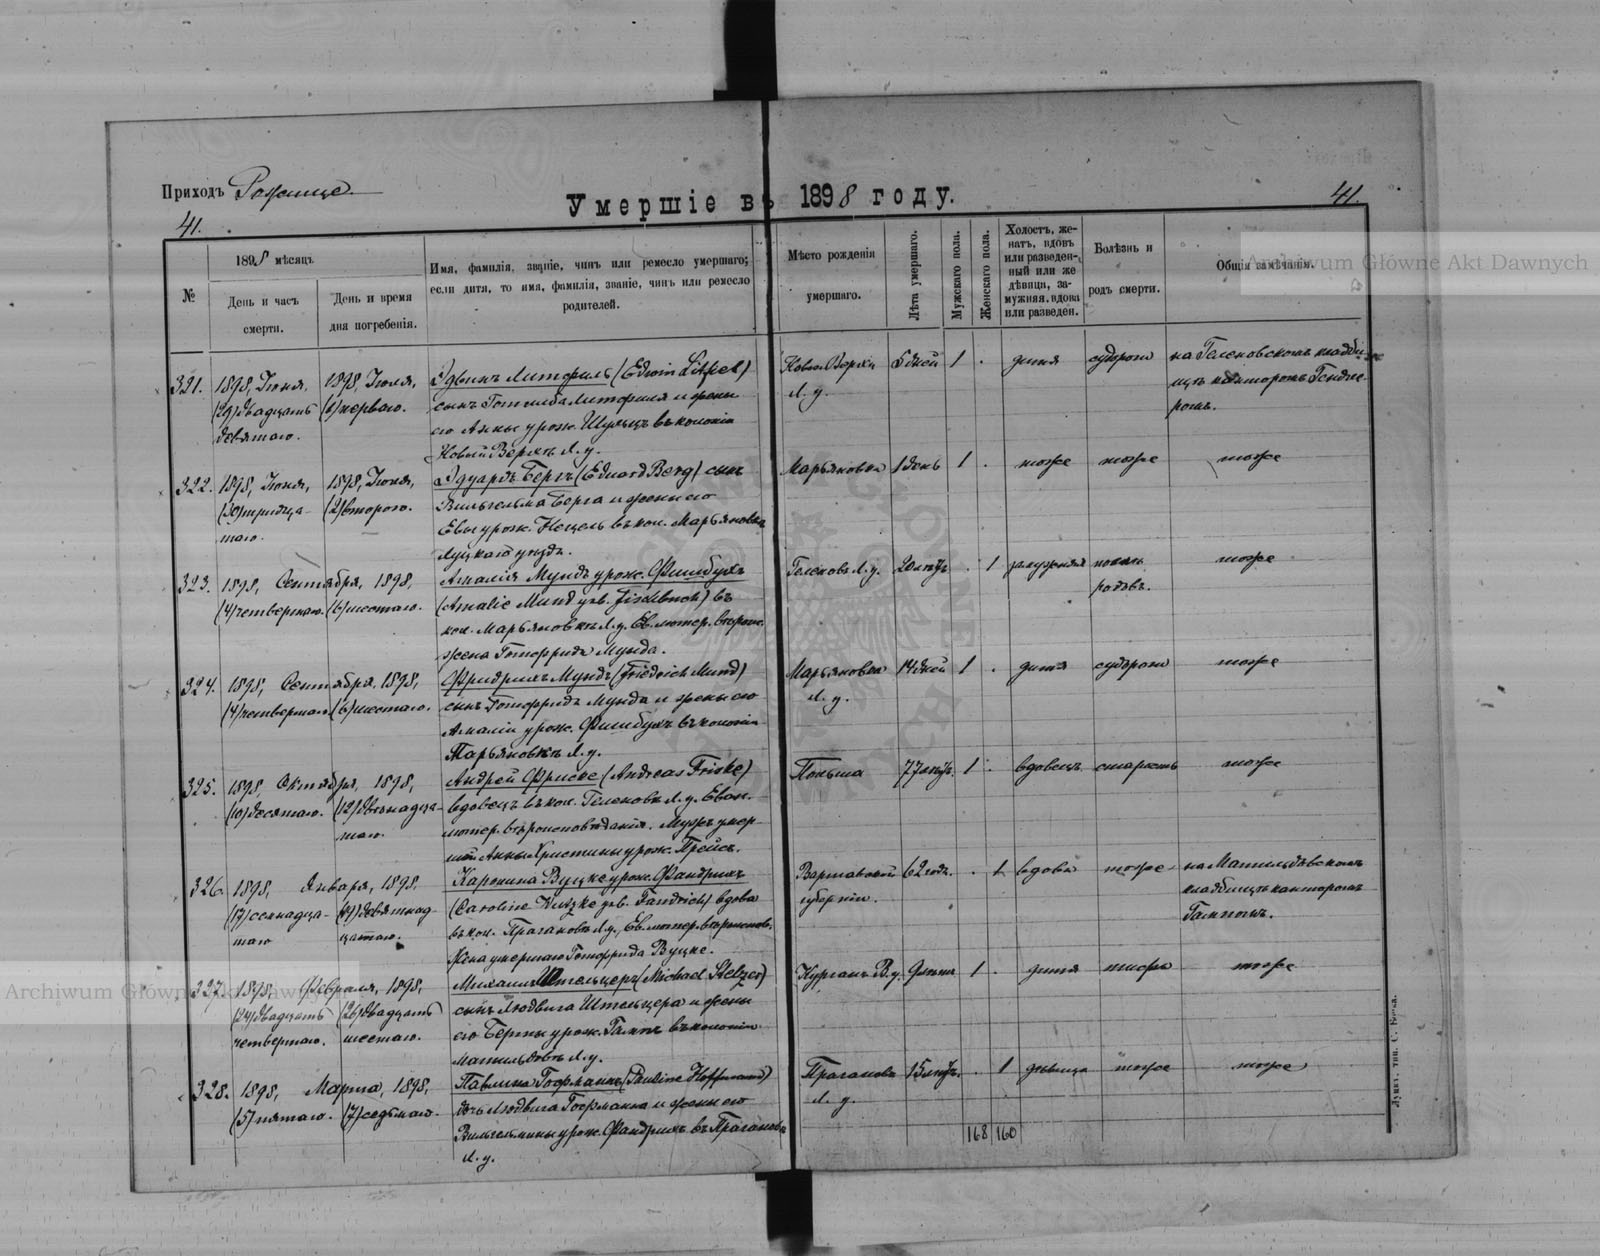 Приходъ Рожище.
Умершіе въ 1898 году.
41.
41.
№
1898 мѣсяцъ
День и часъ смерти.
День и время дня погребенія.
Имя, фамилія, званіе, чинъ или ремесло умершаго;
если дитя, то имя, фамилія, званіе, чинъ или ремесло
родителей.
Мѣсто рожденія
умершаго.
Лѣта умершаго.
Мужскаго пола.
Женскаго пола.
Холостъ, же-
натъ, вдовъ
или разведен-
ный или же
дѣвица, за-
мужняя, вдова
или разведен.
Болѣзнь и
родъ смерти.
Общія замѣчанія.
321. 1898, Іюня, 1898, Іюля, Эдвинъ Литфиль (Edwin Litfiel) 5 дней 1 . дитя судороги
(29) двадцать (1) перваго. сынъ Готлиба Литфиля и жены Л. у.
девятаго. его Анны урож. Шульцъ въ колоніи
Л. у.
322. 1898, Іюня, 1898, Іюля, Эдуардъ Бергъ (Eduard Berg) сынъ Марьяновка 1 день 1 . тоже тоже тоже
(30) тридца- (2) второго. Вильгельма Берга и жены его
таго. Евы урож. въ кол. Марьяновкѣ
Луцкаго уѣзда.
323. 1898, Сентября, 1898, Амалія Мундъ урож. Фишбухъ Геленовъ Л. у. . 1 замужняя тоже
(4) четвертаго. (6) шестаго. (Amalie Mund geb. Fischbuch) въ родовъ.
кол. Марьяновкѣ Л. у. Ев. лютер. вѣроис.
жена Готфрида Мунда.
324. 1898, Сентября, 1898, Фридрихъ Мундъ (Friedrich Mund) Марьяновка 14 дней 1 . дитя судороги тоже
(4) четвертаго. (6) шестаго. сынъ Готфрида Мунда и жены его Л. у.
Амаліи урож. Фишбухъ въ колоніи
Марьяновкѣ Л. у.
325. 1898, Октября, 1898, Андрей Фриске (Andreas Friske) Польша 77 лѣтъ. 1 . вдовецъ старость тоже
(10) десятаго. (12) двѣнадца- вдовецъ въ кол. Геленовѣ Л. у. Еван.
таго. лютер. вѣроисповѣданія. Мужъ умер-
шей Анны Христины урож. Прейсъ.
326. 1898, Января, 1898, Каролина Вуцке урож. Фандрихъ Варшавской 62 года. . 1 вдова тоже на Матильдовскомъ
(17) семнадца- (19) девятнад- (Caroline Wutzke geb. Fandrich) вдова губерніи. кладбищѣ канторомъ
таго цатаго. въ кол. Прагановѣ Л. у., Ев. лютер. вѣроисповѣ. Гамполъ.
Жена умершаго Готфрида Вуцке.
327. 1898, Февраля, 1898, Михаилъ Штельцеръ (Michael Stelzer) Курганъ В. у. 1 . дитя тифъ тоже
(24) двадцать (26) двадцать сынъ Людвига Штельцера и жены
четвертаго. шестаго. его Берты урож. въ колоніи
Матильдовѣ Л. у.
328. 1898, Марта, 1898, Павлина Гофманнъ (Pauline Hoffmann) Прагановъ 15 лѣтъ. . 1 дѣвица тоже тоже
(5) пятаго. (7) седьмаго. дочь Людвига Гофманна и жены его Л. у.
Вильгельмины урож. Фандрихъ въ Прагановѣ
Л. у.
168 160
Луцкъ, тип. С. Бонка.
Archiwum Główne Akt Dawnych
Archiwum Główne Akt Dawnych